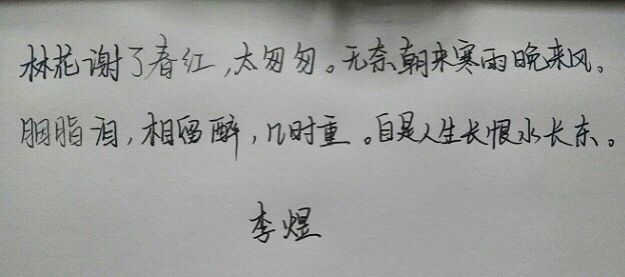 林花谢了春红，太匆匆。无奈朝来寒雨晚来风。
胭脂泪，相留醉，几时重。自是人生长恨水长东。
李煜